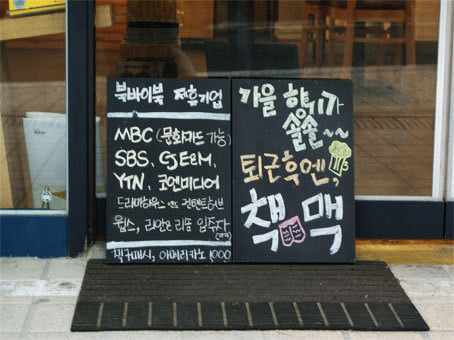 북바이북 제휴기업
MBC (문화카드 가능)
SBS, CJ E&M,
YTN, 코엔미디어
드라마하우스 앤드 컨텐트허브
웝스, 리안 리좀 입주자
책커피시, 아메리카노 1000
가을 향기가
솔솔~~
퇴근후엔,
책맥